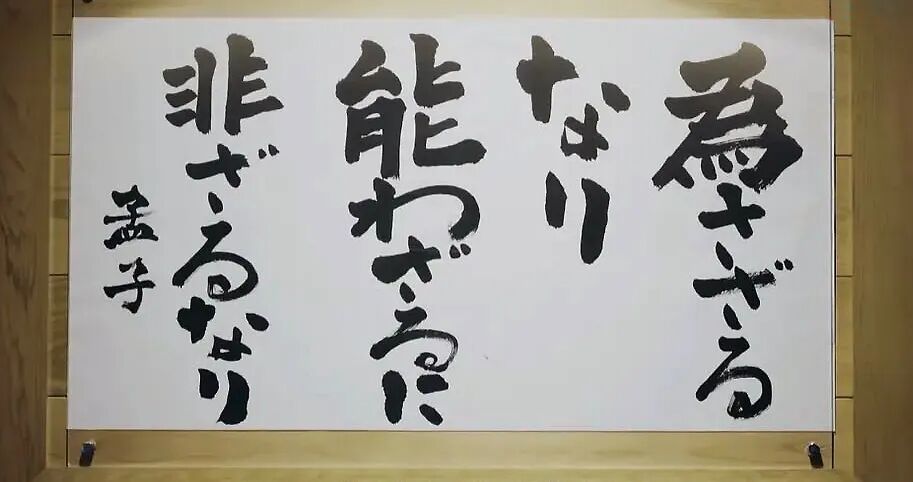 為さざる
なり
能わざるに
非ざるなり
孟子